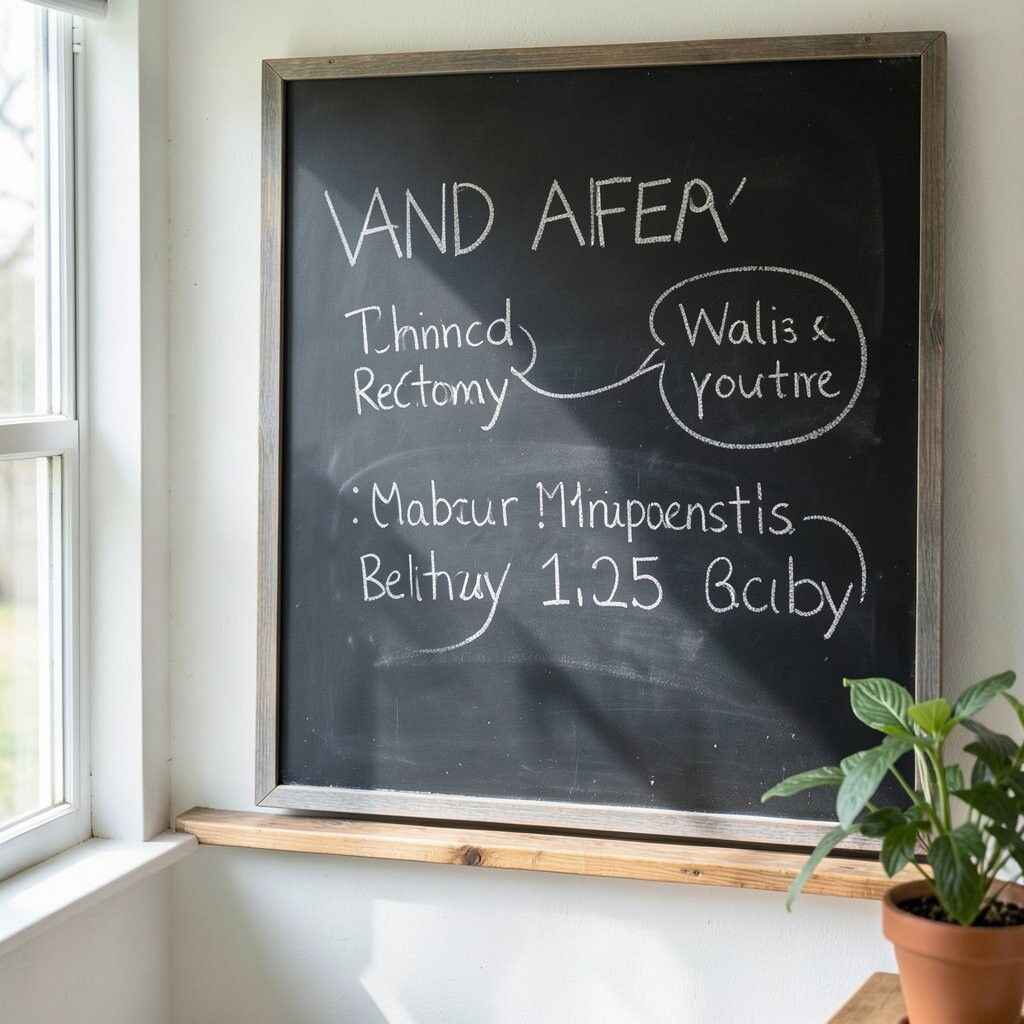 VAND AFFER'
Thinncd
Rectomy
Walis &
youtire
: Mabzur Minipoenstis
Belthzy 1.25 Bciby